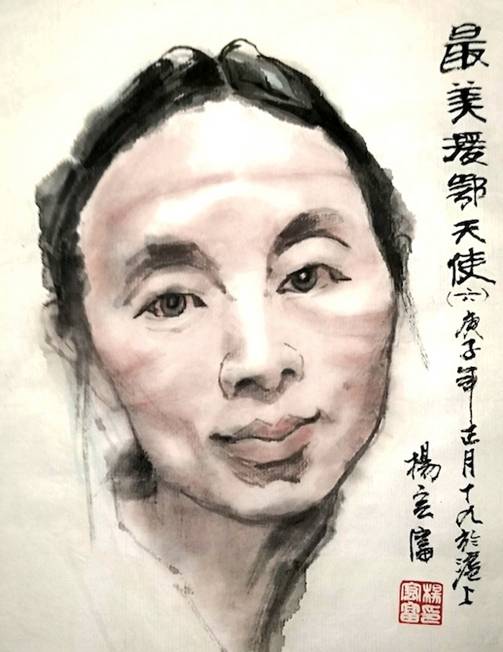 最美援鄂天使(六)庚子年正月十九於滬上
楊宏富
楊印宏富